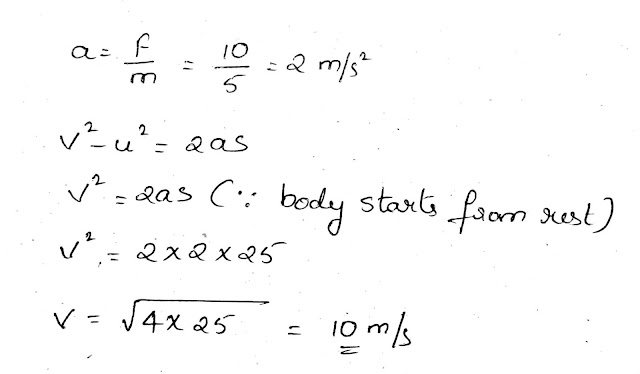 a = f/m = 10/5 = 2 m/s²
v² - u² = 2as
v² = 2as (∵ body starts from rest)
v² = 2 x 2 x 25
v = √4 x 25 = 10 m/s